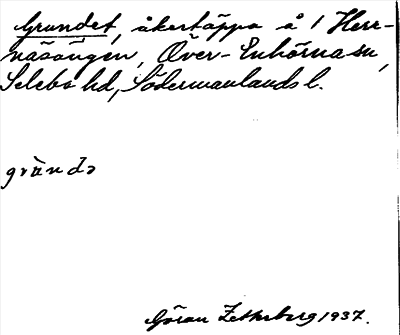 Grundet, åkertäppa å 1 Herr-
näsängen, Över-Enhörna sn,
Selebo hd, Södermanlands l.
grùndə
Göran Zetherberg 1937.